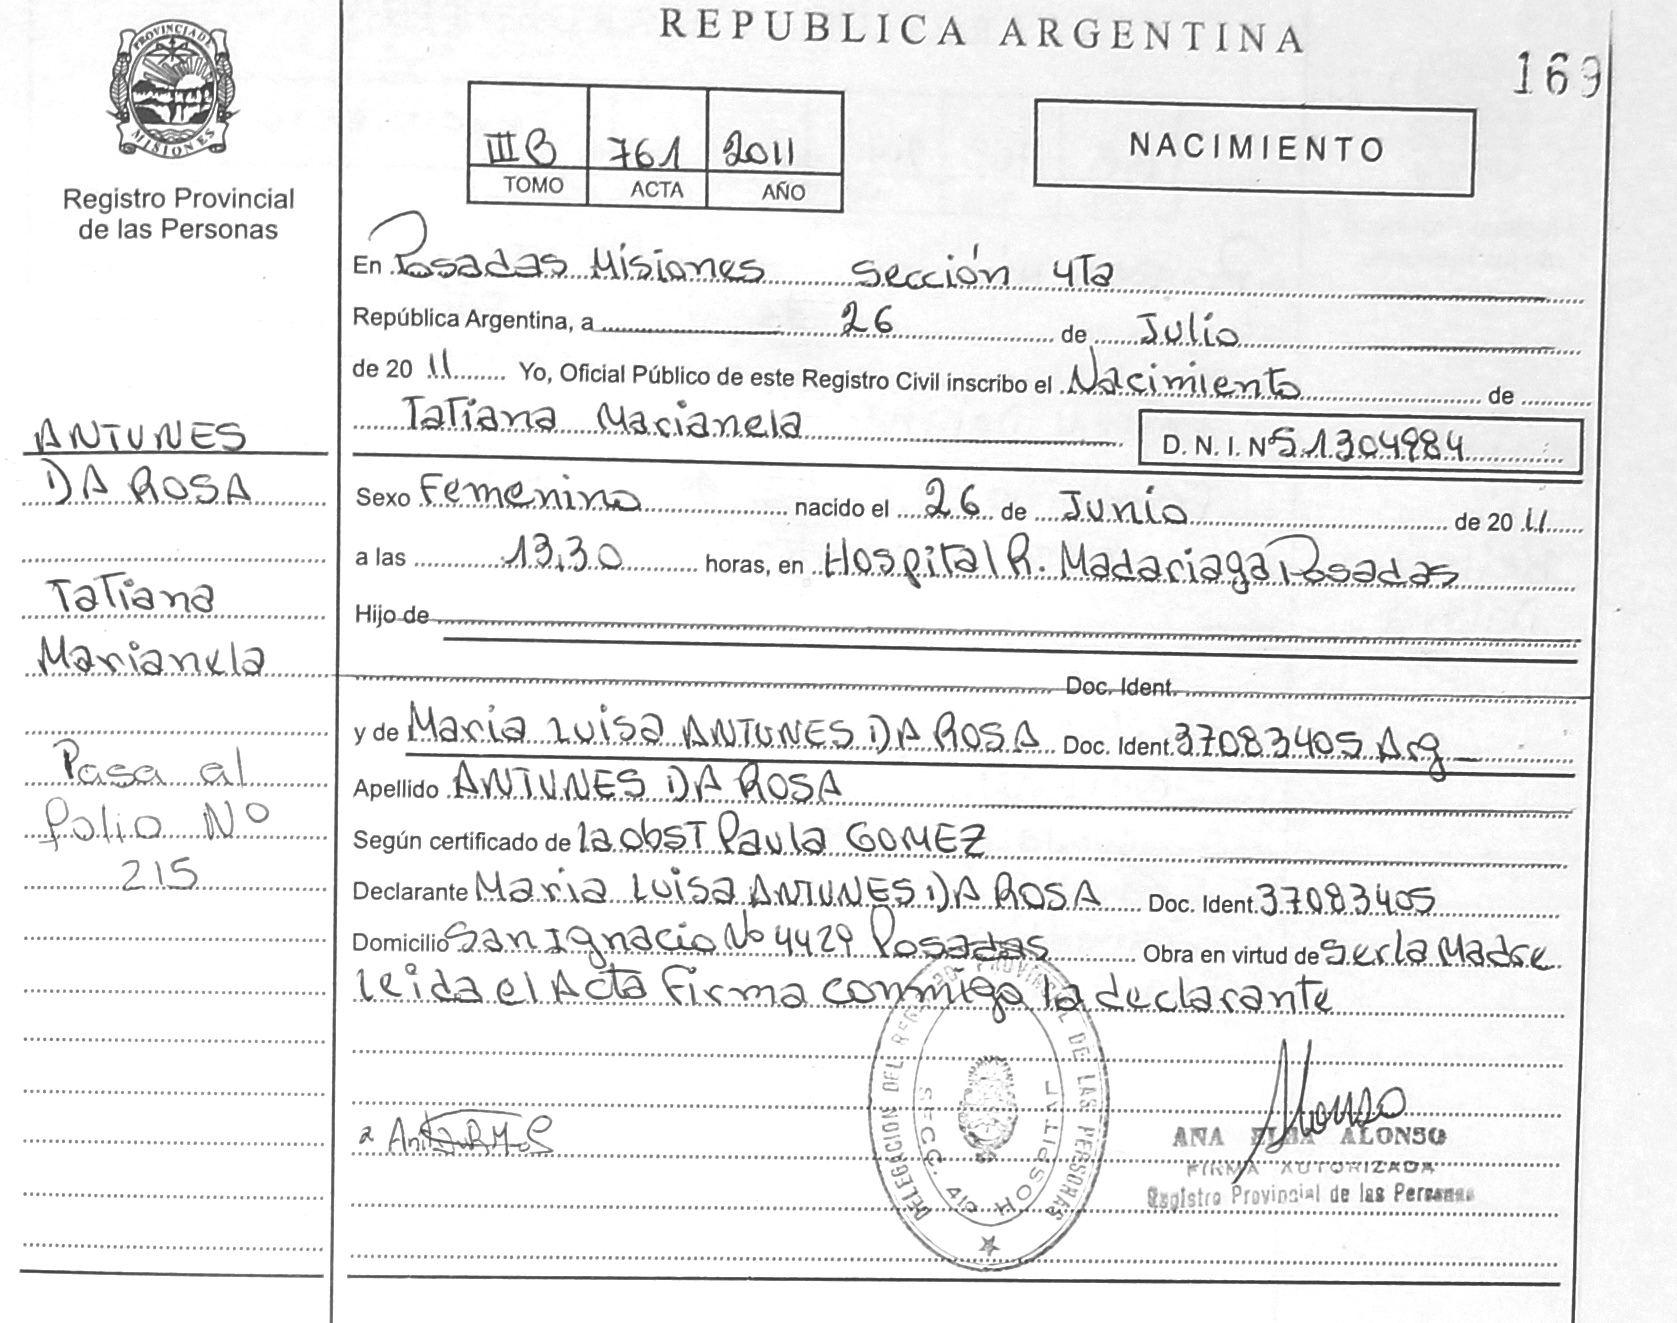 REPUBLICA ARGENTINA
169
PROVINCIA DE MISIONES
Registro Provincial
de las Personas
III B 761 2011
TOMO ACTA AÑO
NACIMIENTO
En Posadas Misiones sección 4Ta
República Argentina, a 26 de Julio
de 20 11 Yo, Oficial Público de este Registro Civil inscribo el Nacimiento de
Tatiana Marianela D. N. I. Nº 51304984
Sexo Femenino nacido el 26 de Junio de 20 11
a las 13,30 horas, en Hospital R. Madariaga Posadas
Hijo de
Doc. Ident.
y de Maria Luisa ANTUNES DA ROSA Doc. Ident. 37083405 Arg
Apellido ANTUNES DA ROSA
Según certificado de la obsT Paula GOMEZ
Declarante Maria Luisa ANTUNES DA ROSA Doc. Ident. 37083405
Domicilio San Ignacio No 4429 Posadas Obra en virtud de ser la Madre
leida el Acta firma conmigo la declarante
ANTUNES
DA ROSA
Tatiana
Marianela
Pasa al
folio Nº
215
DELEGACION DEL REGISTRO PROVINCIAL DE LAS PERSONAS
SECC. 4ta HOSPITAL
Alonso
ANA ELBA ALONSO
FIRMA AUTORIZADA
Registro Provincial de las Personas